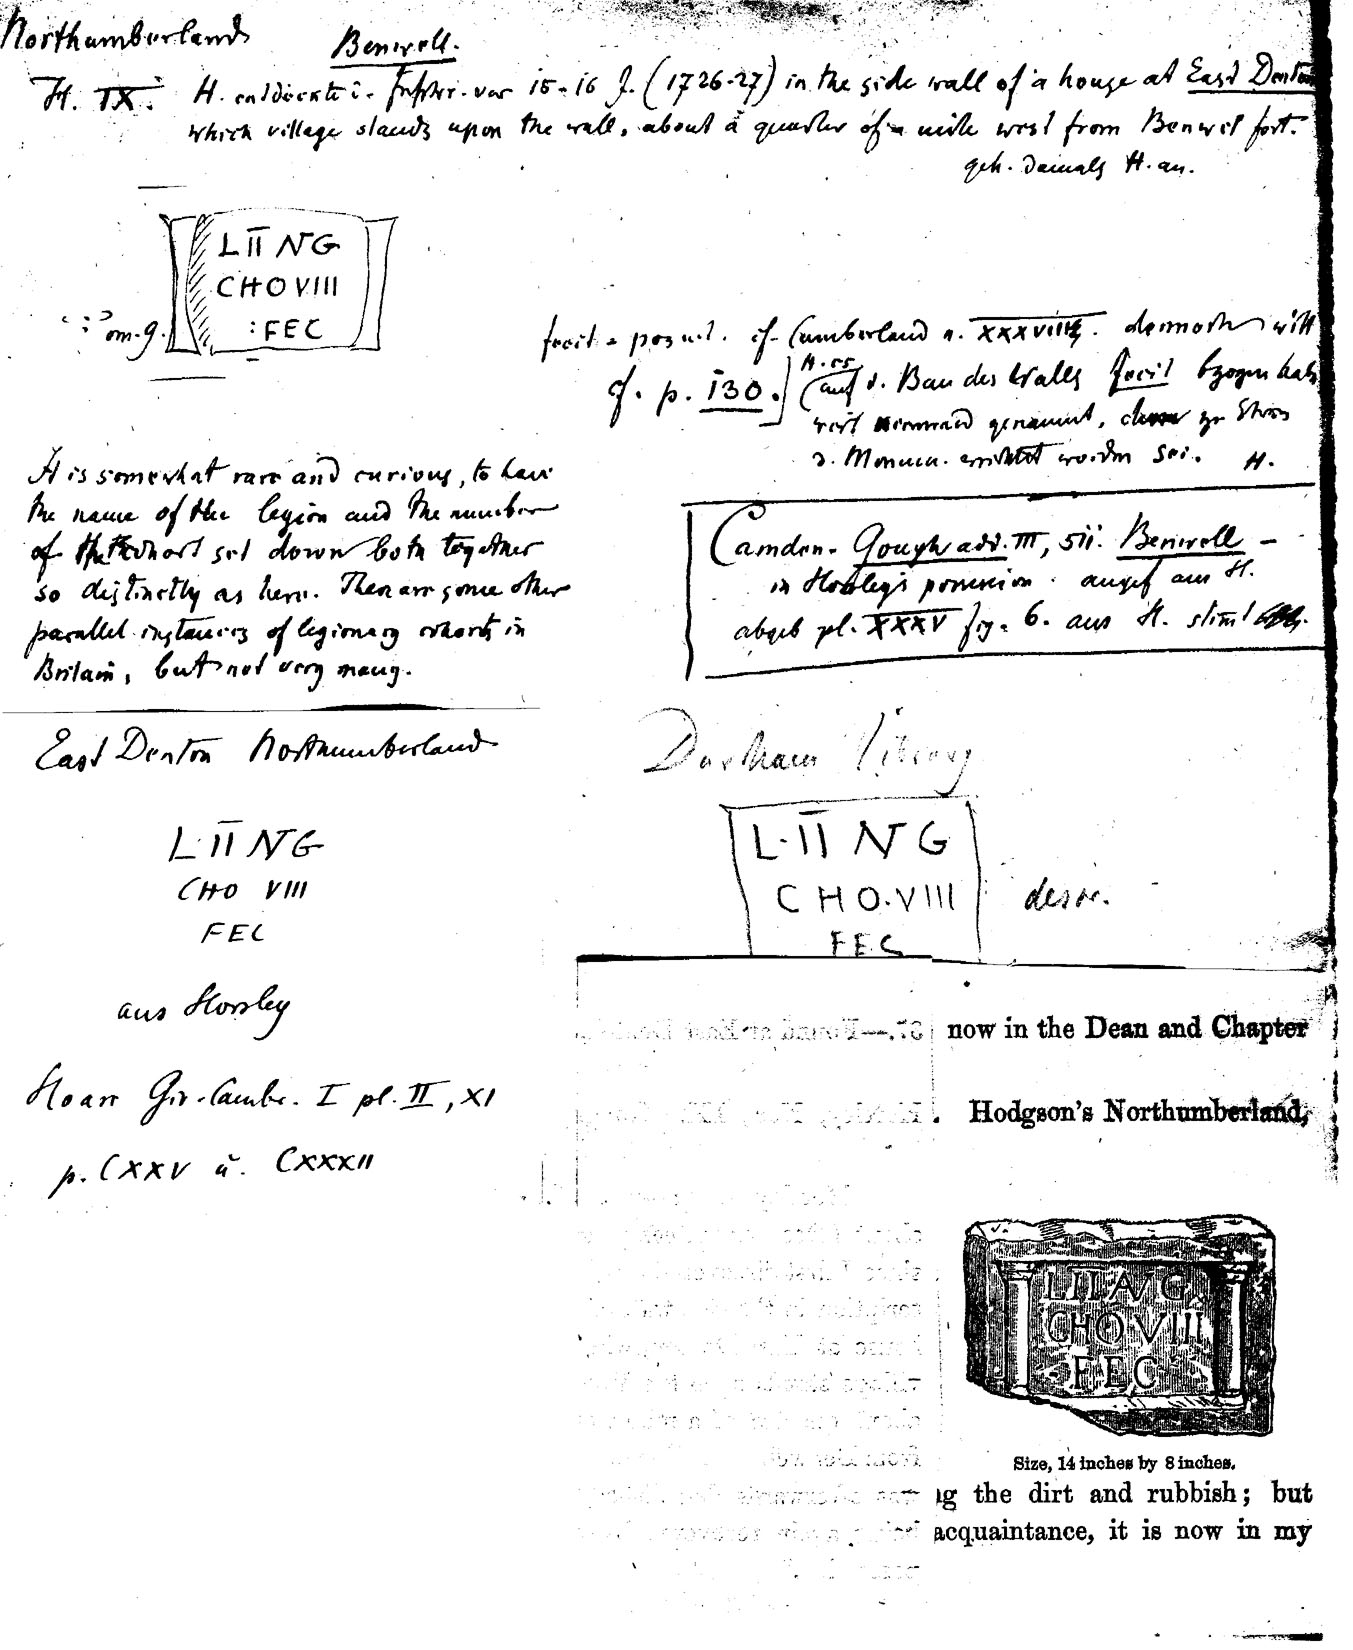 Northumberland
Benwell.
H. IX. H. entdeckte i. Inschr. vor 15-16 J. (1726-27) in the side wall of a house at East Denton
which village stands upon the wall, about a quarter of a mile west from Benwel fort.
geh. damals H. an.
L II NG
CHO VIII
: FEC
om. g.
fecit = posuit. cf. Cumberland n. XXXVIIII. dennoch will
H. es
cf. p. 130. (auf d. Bau des Walls fecit bezogen hab
genannt,
d. Monum. errichtet worden sei. H.
It is somewhat rare and curious, to have
the name of the legion and the number
of the cohort set down both together
so distinctly as here. There are some other
parallel instances of legionary cohorts in
Britain, but not very many.
Camden-Gough add. III, 511. Benwell —
in Horsley's possession. angef aus H.
abgeb pl. XXXV fig. 6. aus H. stimt
East Denton Northumberland
L·II NG
CHO VIII
FEC
aus Horsley
Hoare Gir. Cambr. I pl. II, XI
p. CXXV u. CXXXII
Durham Library
L·II NG
CHO·VIII
FEC
descr.
now in the Dean and Chapter
. Hodgson's Northumberland,
LII NG
CHO·VIII
FEC
Size, 14 inches by 8 inches.
g the dirt and rubbish; but
acquaintance, it is now in my